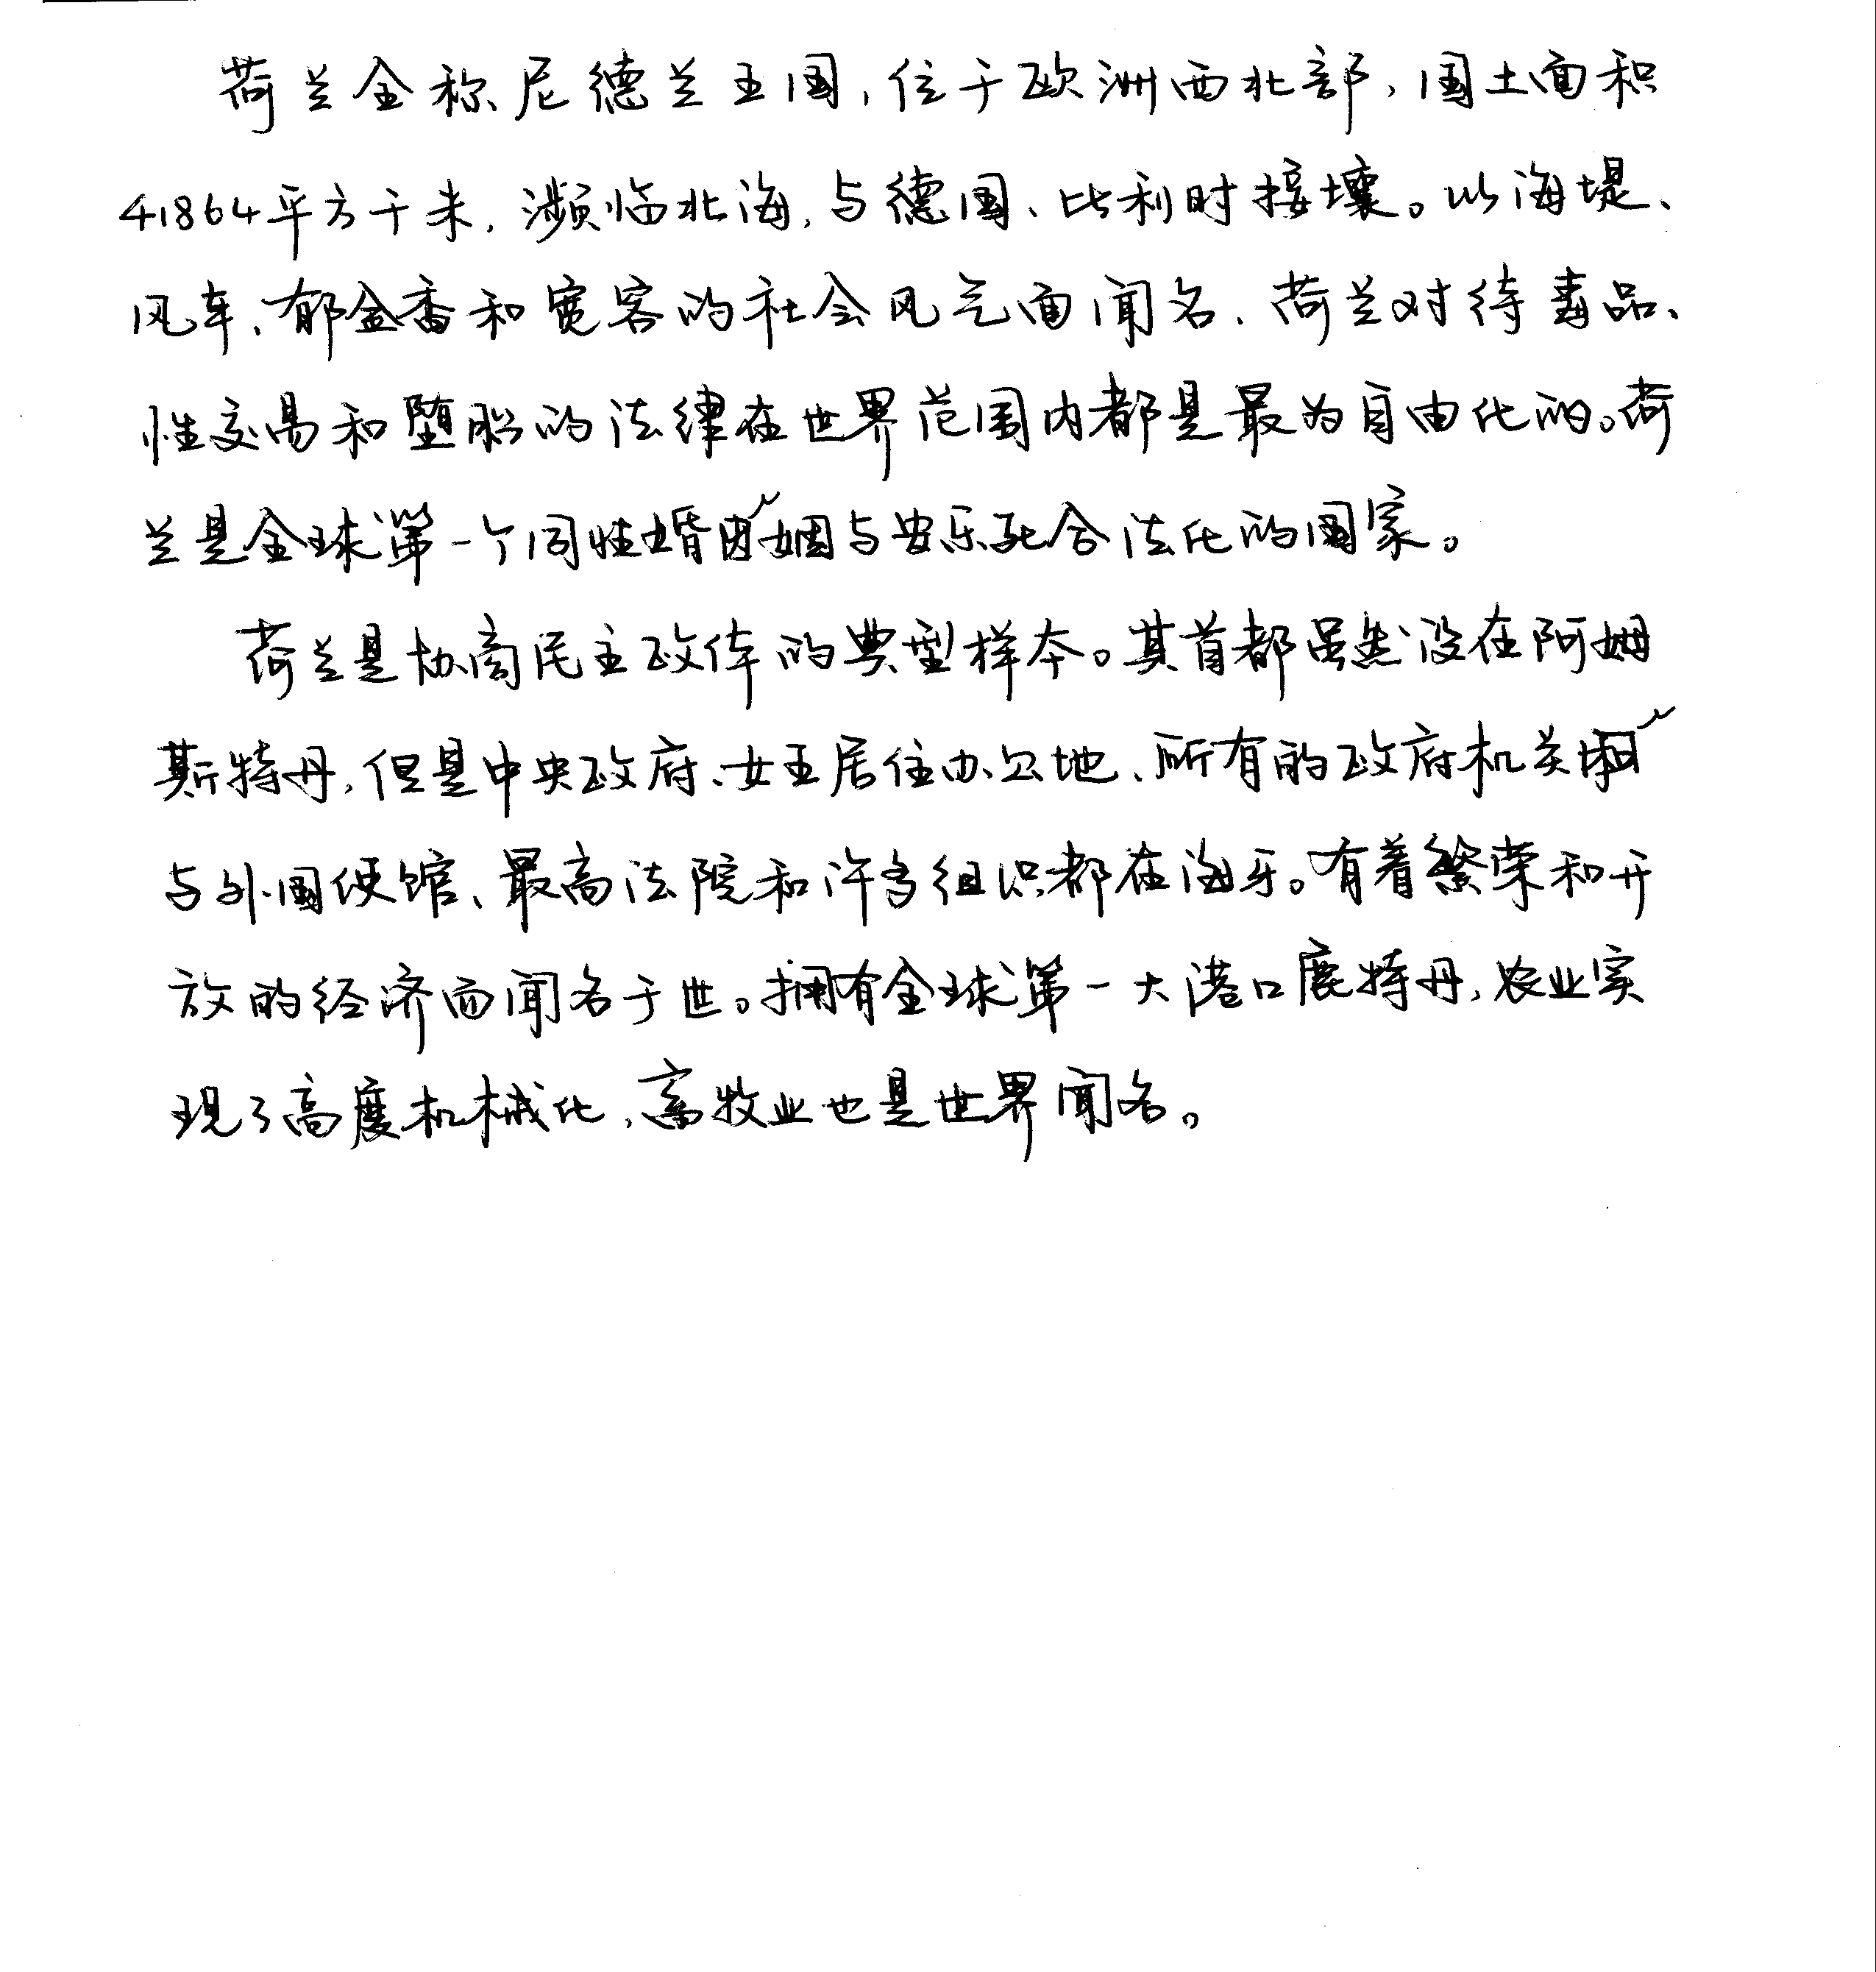 荷兰全称尼德兰王国,位于欧洲西北部,国土面积
41864平方千米,濒临北海,与德国、比利时接壤。以海堤、
风车、郁金香和宽容的社会风气而闻名,荷兰对待毒品、
性交易和堕胎的法律在世界范围内都是最为自由化的。荷
兰是全球第一个同性婚姻与安乐死合法化的国家。
荷兰是协商民主政体的典型样本。其首都虽然设在阿姆
斯特丹,但是中央政府、女王居住办公地、所有的政府机关
与外国使馆、最高法院和许多组织都在海牙。有着繁荣和开
放的经济而闻名于世。拥有全球第一大港口鹿特丹,农业实
现了高度机械化,畜牧业也是世界闻名。